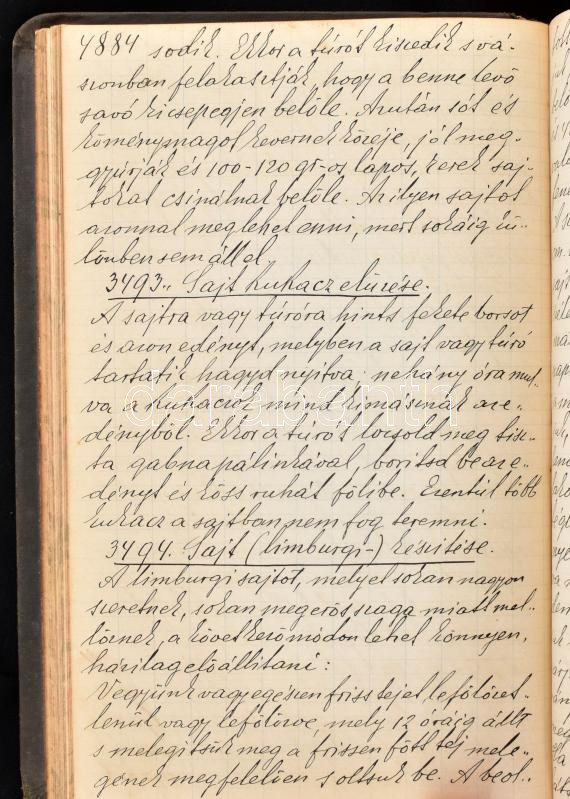 4884 sodik. Ekkor a túrót kiszedik s vá-
szonban felakasztják, hogy a benne levő
savó kicsepegjen belőle. Azután sót és
köménymagot kevernek közéje, jól meg-
gyúrják és 100-120 gr-os lapos, kerek saj-
tokat csinálnak belőle. Az ilyen sajtot
azonnal meg lehet enni, mert sokáig kü-
lönben sem áll el.
3493. Sajt kukacz elűzése.
A sajtra vagy túróra hints fekete borsot
és azon edényt, melyben a sajt vagy túró
tartatik hagyd nyitva. néhány óra mul-
va a kukaczok mind kimásznak az e-
dényből. Ekkor a túrót locsold meg tisz-
ta gabnapálinkával, borítsd be az e-
dényt és köss ruhát fölibe. Ezentúl több
kukacz a sajtban nem fog teremni.
3494. Sajt (limburgi-) készítése.
A limburgi sajtot, melyet sokan nagyon
szeretnek, sokan meg erős szaga miatt mel-
lőznek, a következő módon lehet könnyen,
házilag előállítani:
Vegyünk vagy egészen friss tejet, lefölözet-
lenül vagy lefölözve, mely 12 óráig állt
s melegítsük meg a frissen főtt tej mele-
gének megfelelően s oltsuk be. A beol-
darabanth.com